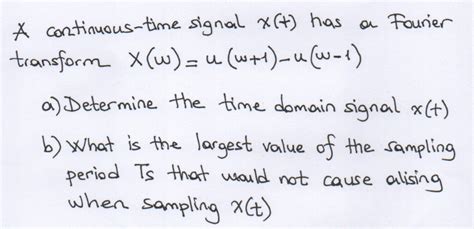 A continuous-time signal x(t) has a Fourier
transform X(w) = u(w+1)-u(w-1)
a) Determine the time domain signal x(t)
b) What is the largest value of the sampling
period Ts that would not cause alising
when sampling x(t)